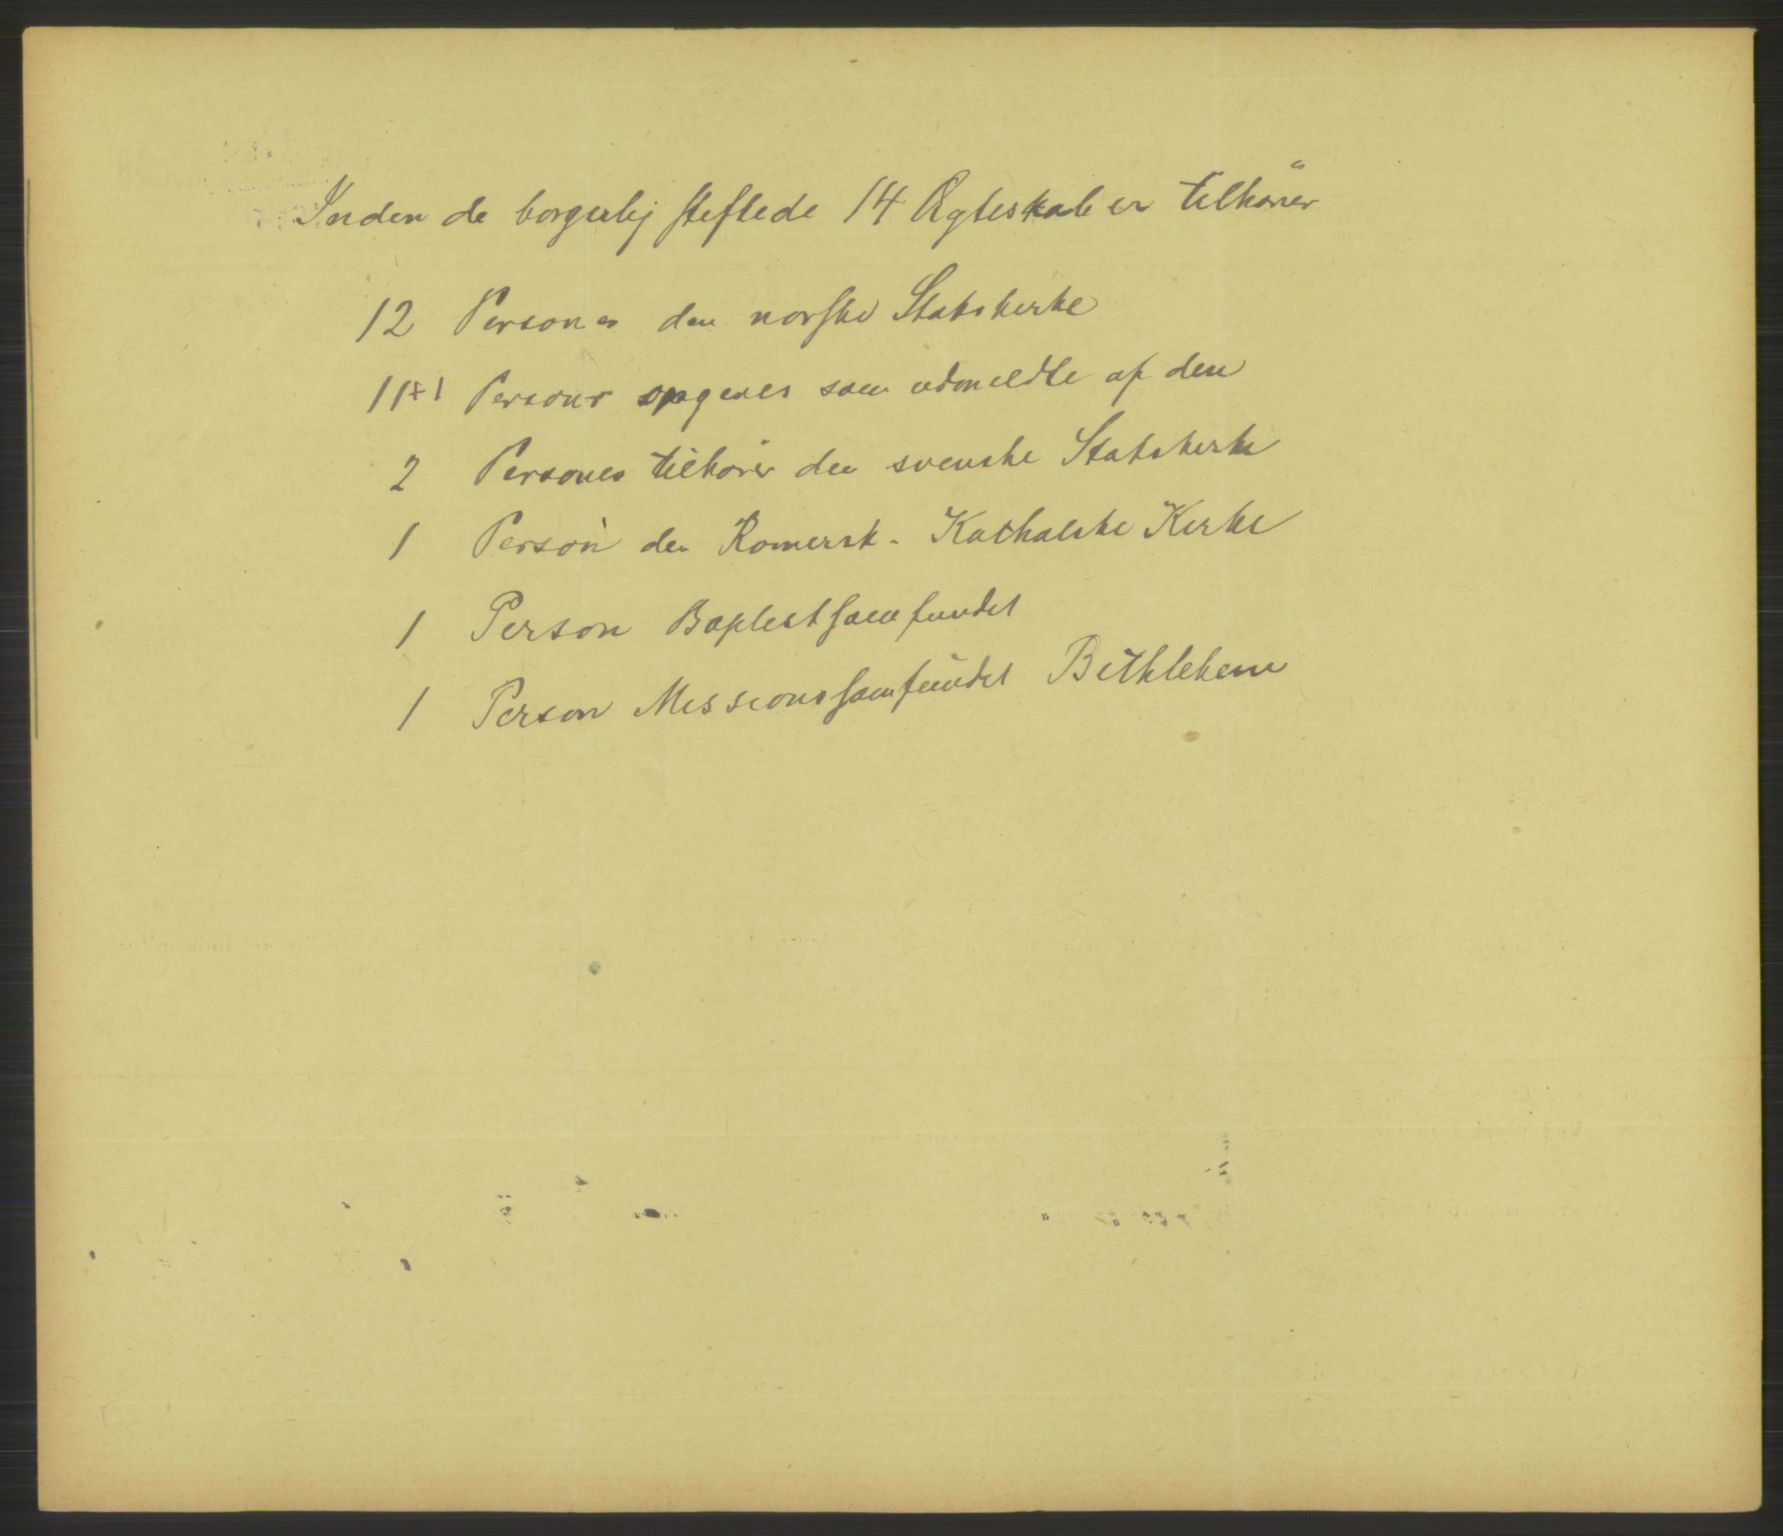 Inden de borgerlig stiftede 14 Ægteskaber tilhører
12 Personer den norske Statskirke
11+1 Personer opgives som udmeldte af den
2 Personer tilhører den svenske Statskirke
1 Person den Romersk-Katholske Kirke
1 Person Baptistsamfundet
1 Person Missionssamfundet Bethlehem